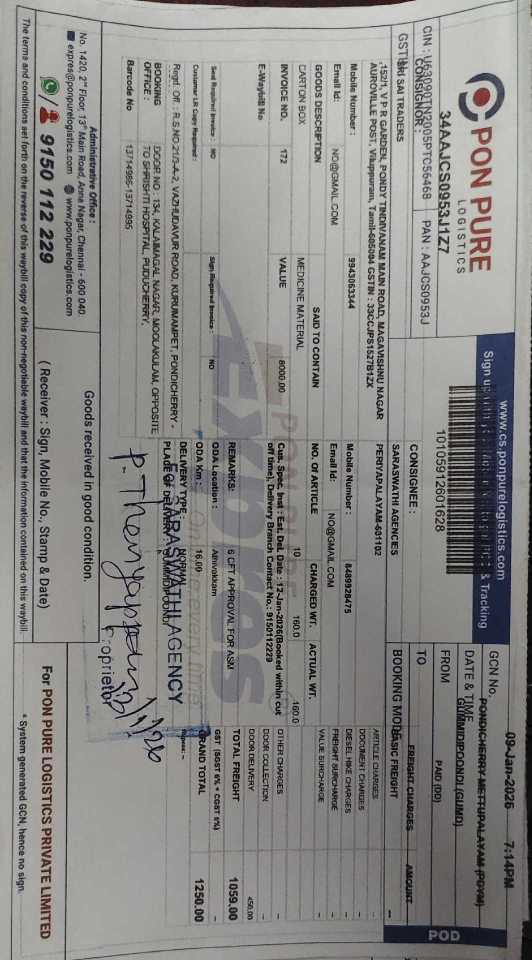 PON PURE
LOGISTICS
www.cs.ponpurelogistics.com
Sign up & Tracking
CIN : U63090TN2005PTC56468 PAN : AAJCS0953J
34AAJCS0953J1Z7
GSTIN
10105912601628
GCN No.
DATE & TIME 09-Jan-2026 7:14PM
FROM PONDICHERRY METTUPALAYAM (PGYM)
TO GUMMIDIPOONDI (GUMD)
BOOKING MODE PAID (DD)
POD
CONSIGNOR :
SRI SAI TRADERS
,152/1, V P R GARDEN, PONDY TINDIVANAM MAIN ROAD, MAGAVISHNU NAGAR
AUROVILLE POST, Viluppuram, Tamil-605004 GSTIN : 33CCJPS1527B1ZX
Mobile Number : 9943063344
Email Id: NO@GMAIL.COM
CONSIGNEE :
SARASWATH AGENCIES
PERIYAPALAYAM-601102
Mobile Number : 8489928475
Email Id: NO@GMAIL.COM
GOODS DESCRIPTION SAID TO CONTAIN NO. OF ARTICLE CHARGED WT. ACTUAL WT.
CARTON BOX MEDICINE MATERIAL 10 160.0 160.0
INVOICE NO. 172 VALUE 8000.00
E-Waybill No
Cus. Spec. Inst : Est. Del. Date : 12-Jan-2026(Booked within cut
off time), Delivery Branch Contact No.: 9150112229
Seal Required Invoice : NO Sign Required Invoice : NO
Customer LR Copy Required :
REMARKS: 6 CFT APPROVAL FOR ASM
ODA Location : Athivakkam
ODA Km : 16.00
DELIVERY TYPE : NORMAL
PLACE OF DELIVERY : GUMMIDIPOONDI
FREIGHT CHARGES AMOUNT
BASIC FREIGHT –
ARTICLE CHARGES –
DOCUMENT CHARGES –
DIESEL HIKE CHARGES –
FREIGHT SURCHARGE –
VALUE SURCHARGE –
OTHER CHARGES –
DOOR COLLECTION –
DOOR DELIVERY 450.00
TOTAL FREIGHT 1059.00
GST (SGST 6% + CGST 6%) –
GRAND TOTAL 1250.00
Regd. Off. : R.S.NO.21/3-A-2, VAZHUDAVUR ROAD, KURUMAMPET, PONDICHERRY -
BOOKING OFFICE : DOOR NO : 134, KALAIMAGAL NAGAR, MOOLAKULAM, OPPOSITE
TO SHRISHTI HOSPITAL, PUDUCHERRY,
Barcode No 13714986-13714995
PON PURE
Express
For SARASWATHI AGENCY
P. Theiyappan
12/1/26
Proprietor
Administrative Office :
No. 1420, 2nd Floor, 13th Main Road, Anna Nagar, Chennai - 600 040.
expres@ponpurelogistics.com www.ponpurelogistics.com
9150 112 229
Goods received in good condition.
( Receiver : Sign, Mobile No., Stamp & Date)
For PON PURE LOGISTICS PRIVATE LIMITED
* System generated GCN, hence no sign.
The terms and conditions set forth on the reverse of this waybill copy of this non-negotiable waybill and that the information contained on this waybill